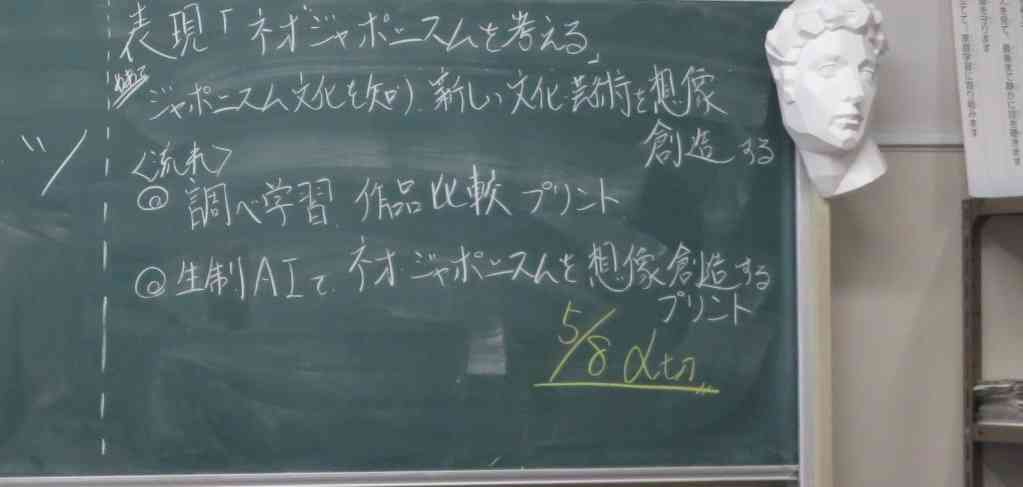 表現「ネオジャポニスムを考える」
ジャポニスム文化を知り、新しい文化芸術を想像
創造する
〈流れ〉
◎調べ学習、作品比較プリント
◎生制AIで、ネオジャポニスムを想像創造する
プリント
5/8 〆切